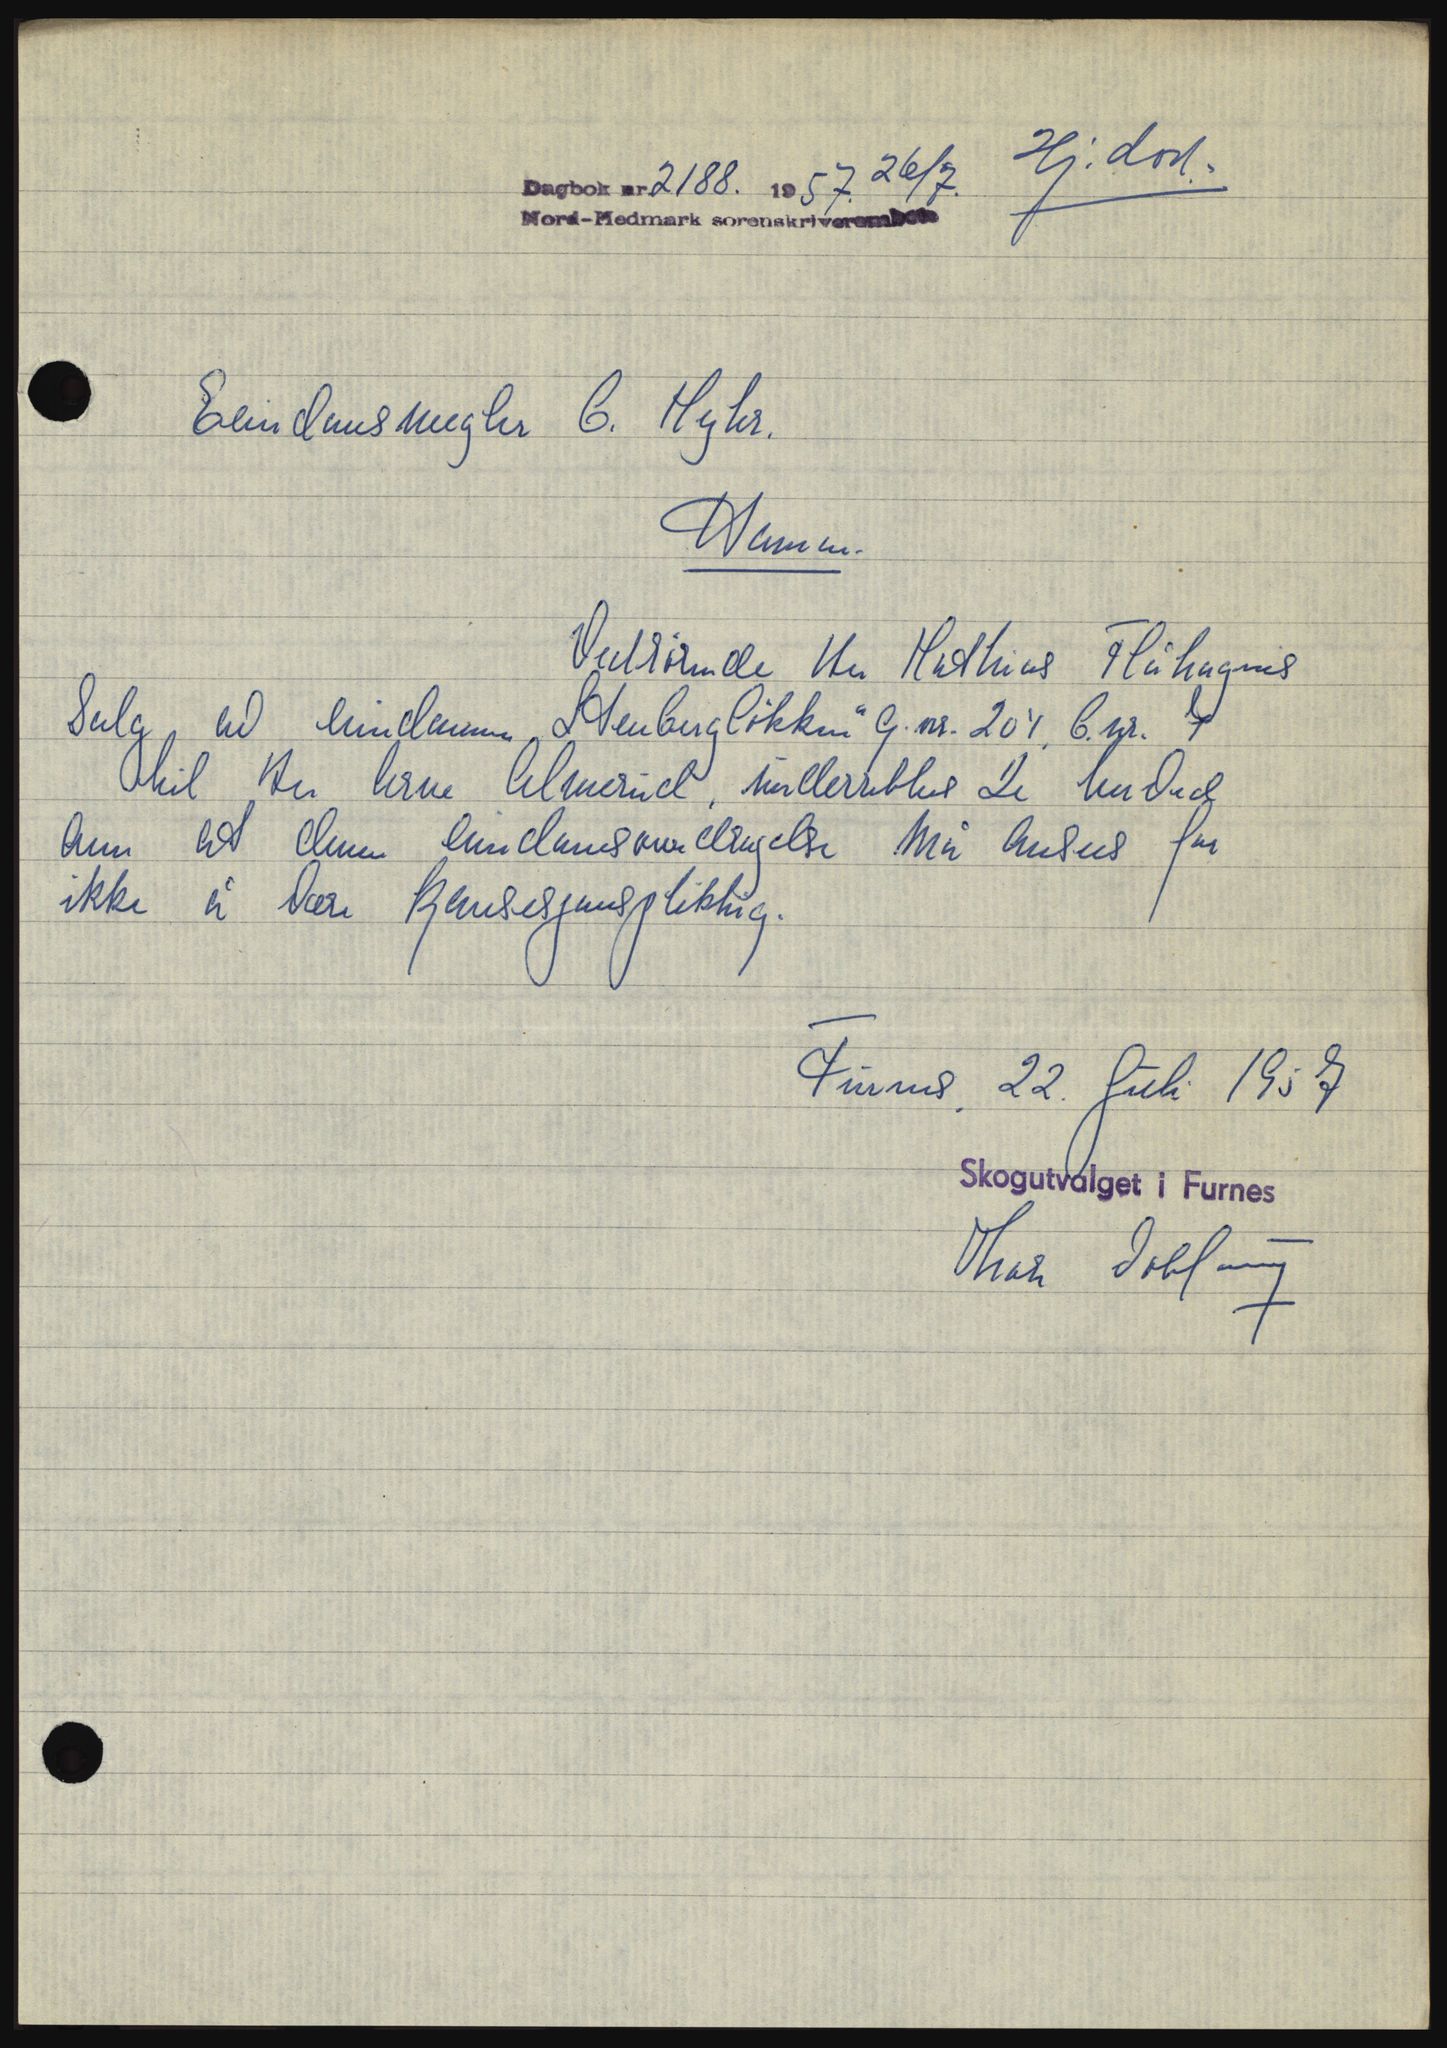 Dagbok nr. 2188. 1957. 26/7. Hj. dok.
Nord-Hedmark sorenskriverembete
Eiendomsmegler C. Myhr.
Hamar.
Vedrörende Hr Mathias Flåhagens
Salg av eiendommen "Stenberglökken" G.nr. 204, B.nr. 7
til Hr Arne Almerud, underrettes De herved
om at denne eiendomsovedragelse må anses for
ikke å være konsesjonspliktig.
Furnes, 22. Juli 1957
Skogutvalget i Furnes
Thor